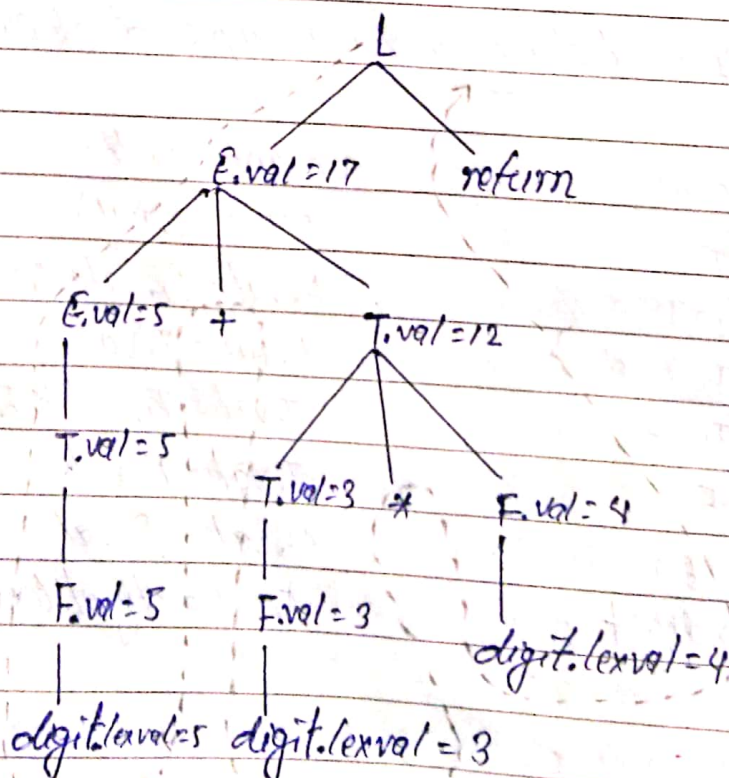 L
E.val=17 return
E.val=5 + T.val=12
T.val=5
T.val=3 * F.val=4
F.val=5 F.val=3
digit.lexval=4
digit.lexval=5 digit.lexval=3